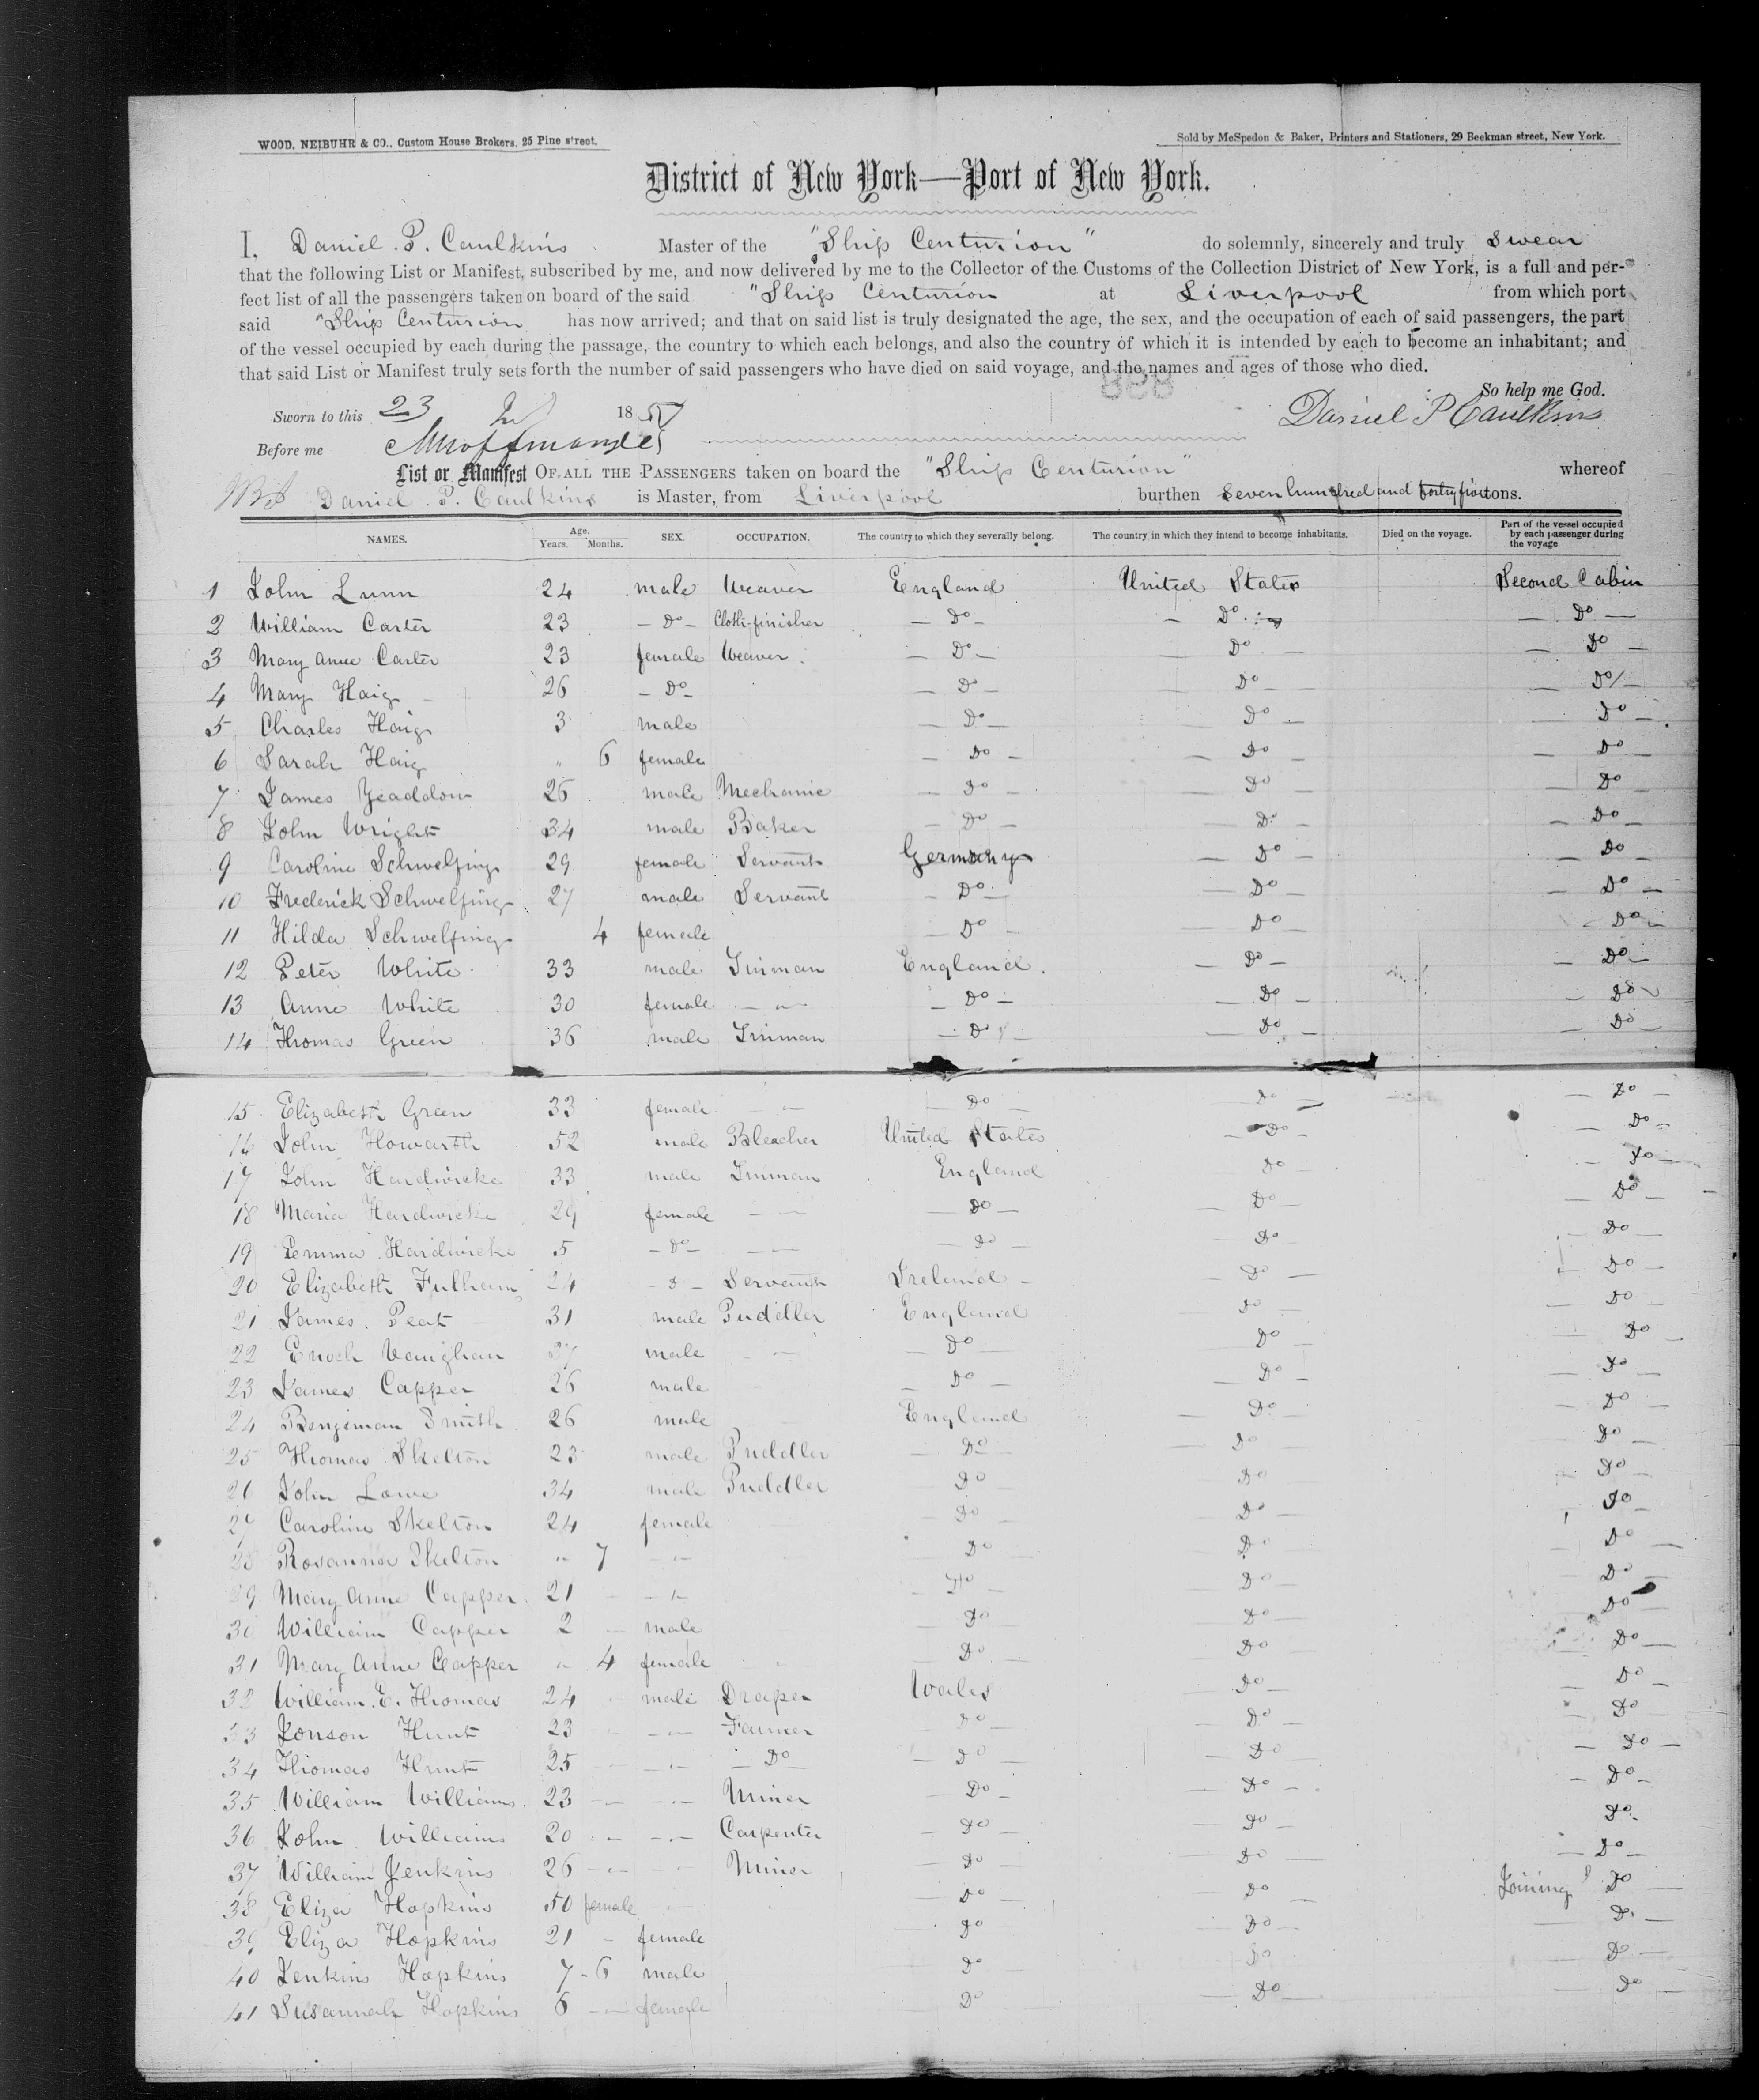 WOOD, NEIBUHR & CO., Custom House Brokers, 25 Pine street.
Sold by McSpedon & Baker, Printers and Stationers, 29 Beekman street, New York.
District of New York—Port of New York.
I, Daniel P. Caulkins Master of the "Ship Centurion" do solemnly, sincerely and truly swear
that the following List or Manifest, subscribed by me, and now delivered by me to the Collector of the Customs of the Collection District of New York, is a full and per-
fect list of all the passengers taken on board of the said "Ship Centurion at Liverpool from which port
said "Ship Centurion has now arrived; and that on said list is truly designated the age, the sex, and the occupation of each of said passengers, the part
of the vessel occupied by each during the passage, the country to which each belongs, and also the country of which it is intended by each to become an inhabitant; and
that said List or Manifest truly sets forth the number of said passengers who have died on said voyage, and the names and ages of those who died.
So help me God.
Sworn to this 23 18 Daniel P Caulkins
Before me
List or Manifest OF ALL THE PASSENGERS taken on board the "Ship Centurion" whereof
Daniel P. Caulkins is Master, from Liverpool burthen Seven hundred and forty five tons.
NAMES. Age. Years. Months. SEX. OCCUPATION. The country to which they severally belong. The country in which they intend to become inhabitants. Died on the voyage. Part of the vessel occupied by each passenger during the voyage
1 John Lunn 24 male Weaver England United States Second Cabin
2 William Carter 23 — Do — Cloth-finisher — Do — — Do — Do —
3 Mary Anne Carter 23 female Weaver — Do — — Do — Do —
4 Mary Haig 26 — Do — — Do — — Do — — Do —
5 Charles Haig 3 male — Do — — Do — — Do —
6 Sarah Haig " 6 female — Do — — Do — — Do —
7 James Yeaddon 26 male Mechanic — Do — — Do — — Do
8 John Wright 34 male Baker — Do — — Do — — Do —
9 Caroline Schwelfing 29 female Servant Germany — Do — — Do —
10 Frederick Schwelfing 27 male Servant — Do — — Do — — Do —
11 Hilda Schwelfing 4 female — Do — — Do — — Do —
12 Peter White 33 male Tinman England — Do — — Do —
13 Anne White 30 female — " — — Do — — Do — — Do
14 Thomas Green 36 male Tinman — Do — — Do — — Do —
15 Elizabeth Green 33 female — " — Do — — Do — — Do —
16 John Howarth 52 male Bleacher United States — Do — — Do —
17 John Hardwicke 33 male Tinman England — Do — — Do —
18 Maria Hardwicke 29 female — " — — Do — — Do — — Do —
19 Emma Hardwicke 5 — Do — — " — — Do — — Do — — Do —
20 Elizabeth Fulham 24 — Do — Servant Ireland — Do — — Do —
21 James Peat 31 male Puddler England — Do — — Do —
22 Enoch Vaughan 27 male — " — — Do — — Do — — Do —
23 James Capper 26 male — Do — — Do — — Do —
24 Benjiman Smith 26 male England — Do — — Do —
25 Thomas Skelton 23 male Puddler — Do — — Do — — Do —
26 John Lowe 34 male Puddler — Do — — Do — — Do —
27 Caroline Skelton 24 female — Do — — Do — — Do —
28 Rosanna Skelton " 7 — " — — Do — — Do — — Do —
29 Mary Anne Capper 21 — " — — Do — — Do — — Do —
30 William Capper 2 — male — Do — — Do — — Do
31 Mary Anne Capper " 4 female — Do — — Do — — Do —
32 William E. Thomas 24 male Draper Wales — Do — — Do —
33 Jonson Hunt 23 — " — Farmer — Do — — Do — — Do —
34 Thomas Hunt 25 — " — — Do — — Do — — Do — — Do —
35 William Williams 23 — " — Miner — Do — — Do — — Do —
36 John Williams 20 — " — Carpenter — Do — — Do — Do
37 William Jenkins 26 — " — Miner — Do — — Do — — Do —
38 Eliza Hopkins 50 female — Do — — Do — Joining Do —
39 Eliza Hopkins 21 female Do — Do — — Do —
40 Jenkins Hopkins 7 - 6 male Do Do — Do —
41 Susannah Hopkins 6 — female Do — Do — — Do —